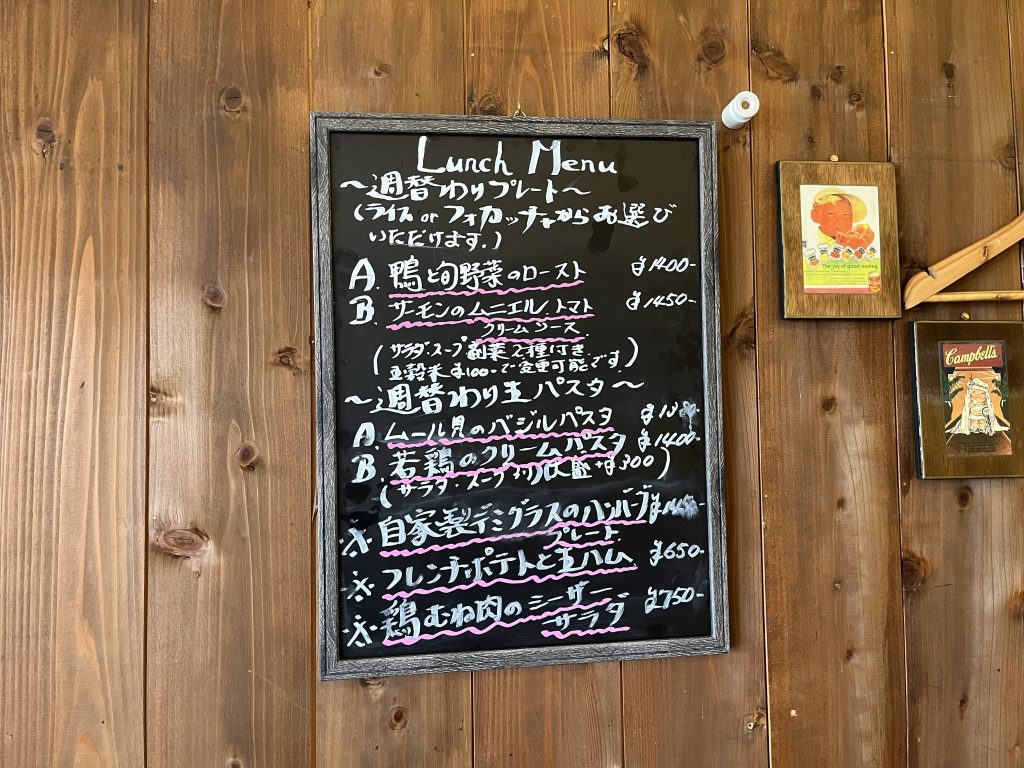 Lunch Menu
～週替わりプレート～
(ライス or フォカッチャからお選び
いただけます.)
A. 鴨と旬野菜のロースト ¥1400-
B. サーモンのムニエル.トマト ¥1450-
クリームソース
(サラダ・スープ 副菜2種付き
五穀米 ¥100-で変更可能です)
～週替わり生パスタ～
A. ムール貝のバジルパスタ
B. 若鶏のクリームパスタ ¥1400-
(サラダ・スープ 付)大盛 +¥300)
※ 自家製デミグラスのハンバーグ ¥1450-
プレート
※ フレンチポテトと生ハム ¥650-
※ 鶏むね肉のシーザー ¥750-
サラダ
The joy of good eating
Campbell's